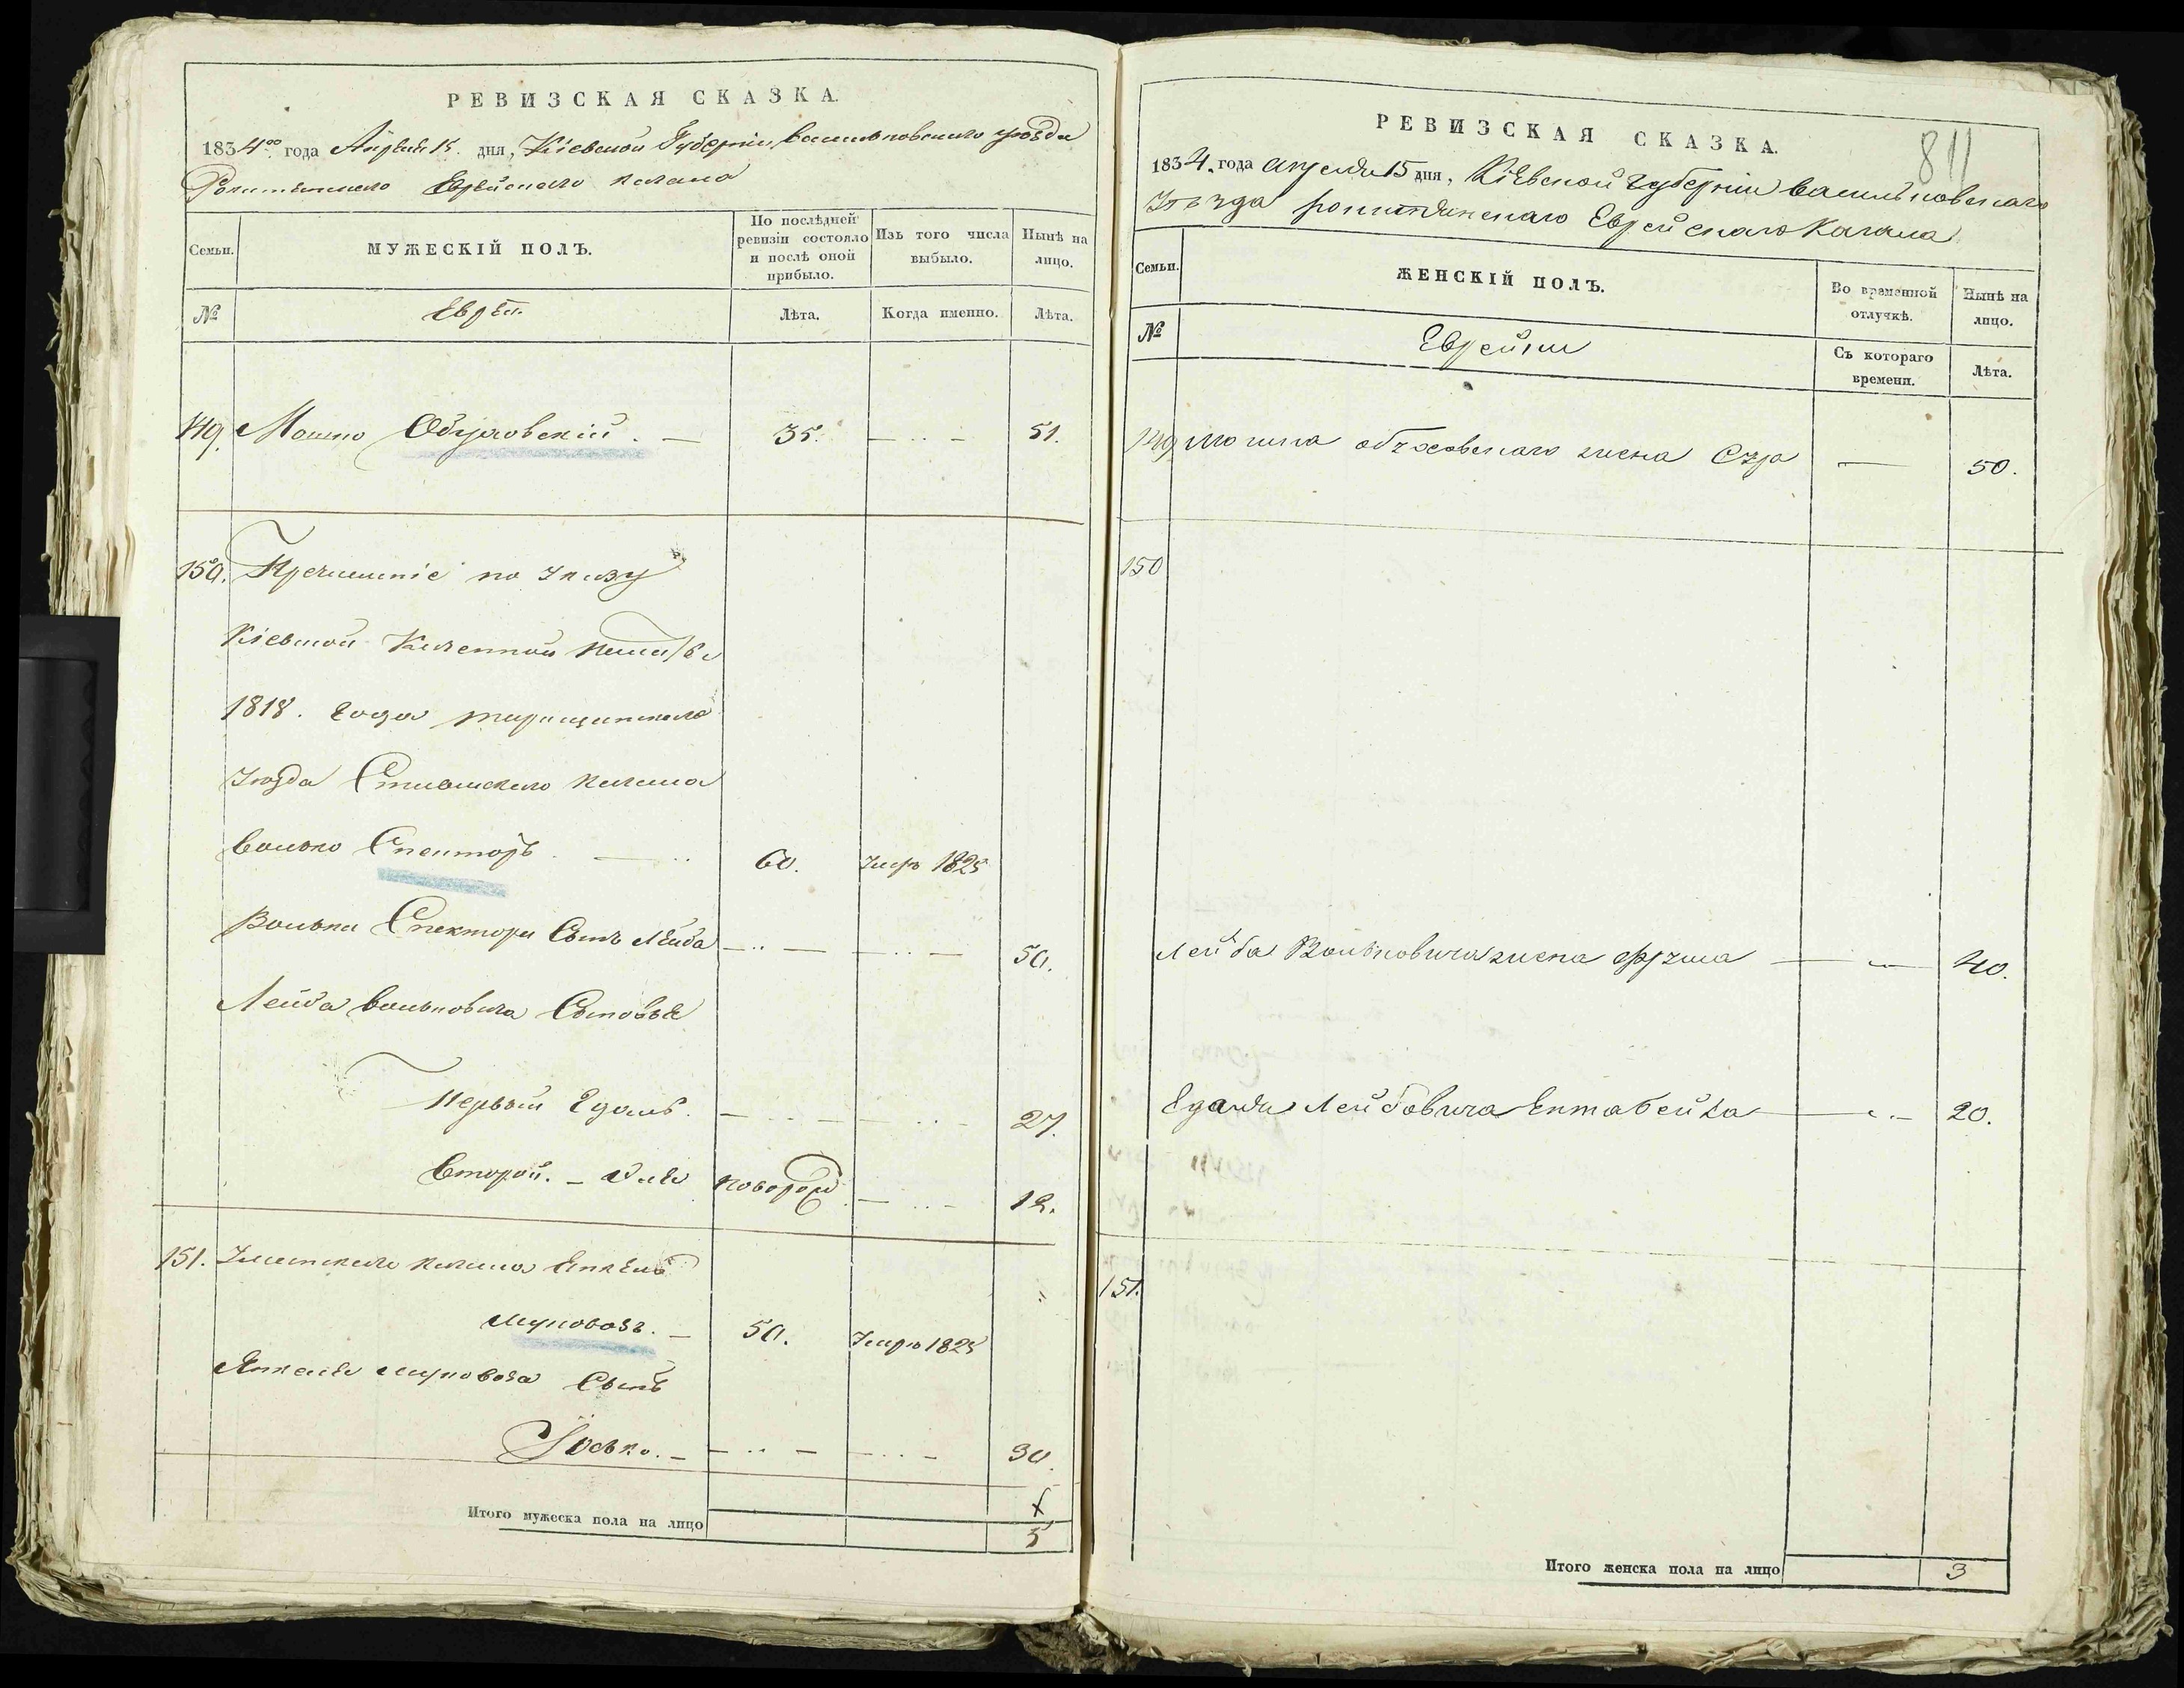 РЕВИЗСКАЯ СКАЗКА.
1834го года Апреля 15 дня, Кіевской Губерніи Васильковского уезда
Рокитянского Еврейского кагала
Семьи.
МУЖЕСКІЙ ПОЛЪ.
По послѣдней ревизіи состояло и послѣ оной прибыло.
Изъ того числа выбыло.
Нынѣ на лицо.
№
Евреи.
Лѣта.
Когда именно.
Лѣта.
149. Мошко Обуховскій. — 35. — .. — 51.
150. по Указу
Кіевской Казенной
1818. Года Таращанского
Уезда Ставиского кагала
Волько Спекторъ. — .. 60. Умръ 1825
Волька Спектора Сынъ Лейба — .. — — .. — 50.
Лейба Вольковича Сыновья
Первый Гдаль. — .. — .. — 27.
Второй. — новорож — .. — 12.
151. кагала Янкель
Мирковозъ. — 50. Умръ 1825
Янкеля Сынъ
Іосько. — — .. — — .. — 30.
Итого мужеска пола на лицо
5
811
РЕВИЗСКАЯ СКАЗКА.
1834. года апреля 15 дня, Кіевской Губерніи Васильковскаго
Уѣзда рокитянскаго Еврейскаго Кагала
Семьи.
ЖЕНСКІЙ ПОЛЪ.
Во временной отлучкѣ.
Нынѣ на лицо.
№
Еврейки
Съ котораго времени.
Лѣта.
149 мошка обуховскаго жена Сура — 50.
150
Лейба Вольковича жена Фрума — — 40.
Гдаля Лейбовича Бейла — .. — 20.
151.
Итого женска пола на лицо
3